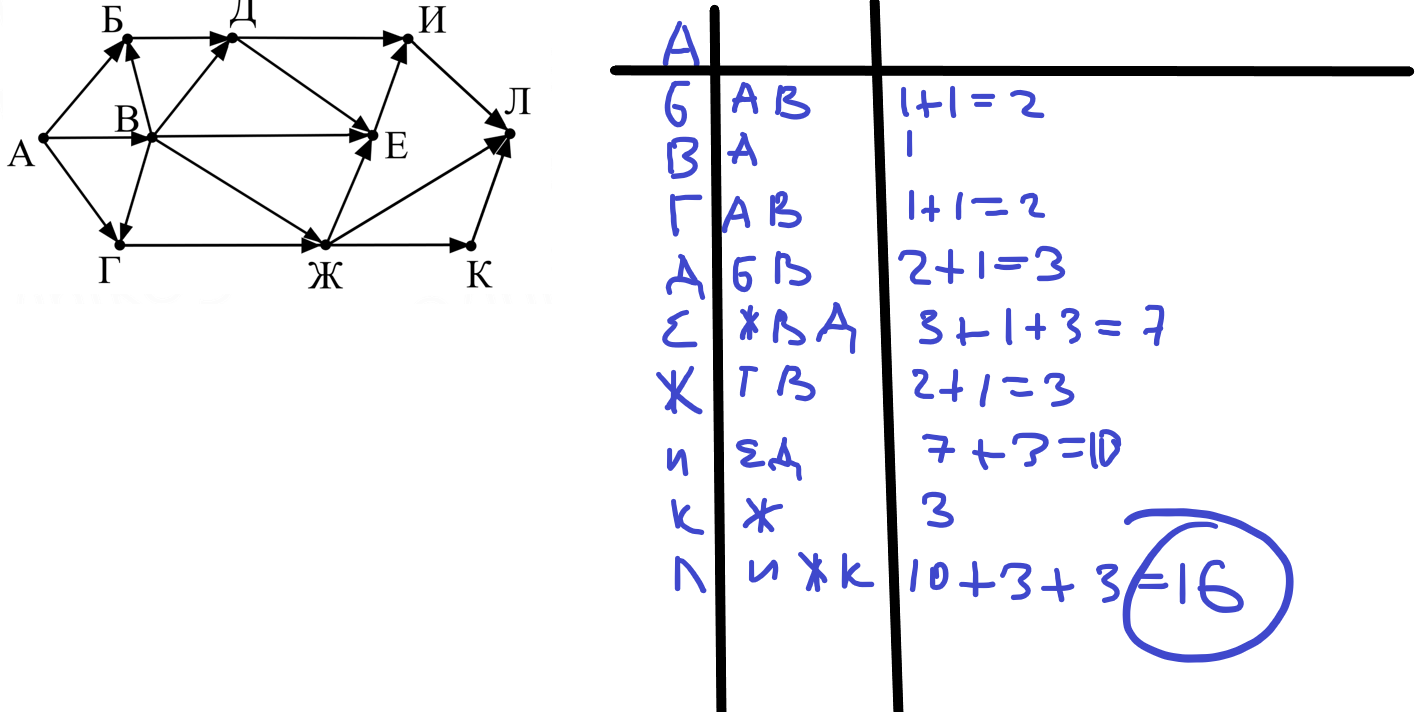 Б Д И
А В Е Л
Г Ж К
А
Б А В 1+1=2
В А 1
Г А В 1+1=2
Д Б В 2+1=3
Е Ж В Д 3+1+3=7
Ж Г В 2+1=3
И Е Д 7+3=10
К Ж 3
Л И Ж К 10+3+3=16